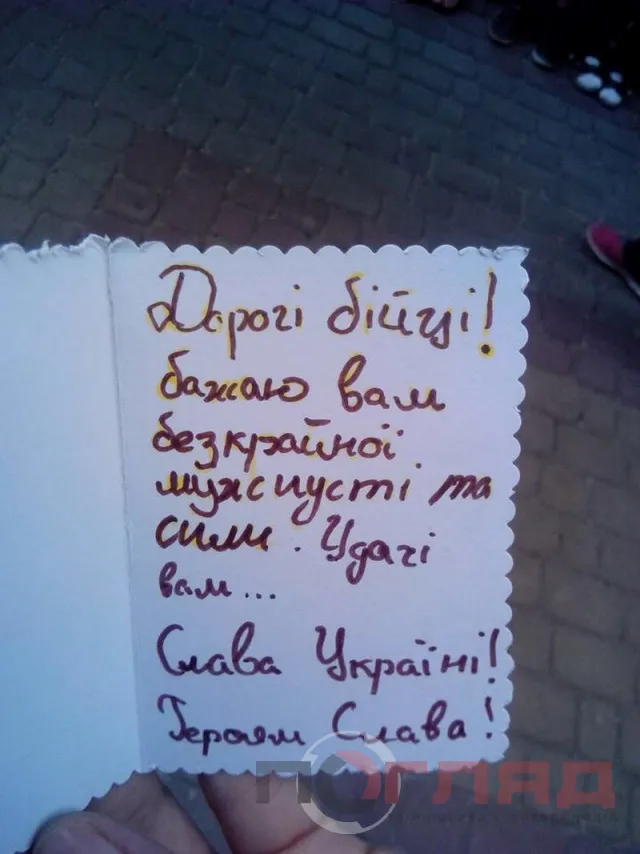 Дорогі бійці!
бажаю вам
безкрайної
мужспусті та
сили. Удачі
вам...
Слава Україні!
Героям Слава!
ПОГЛЯД